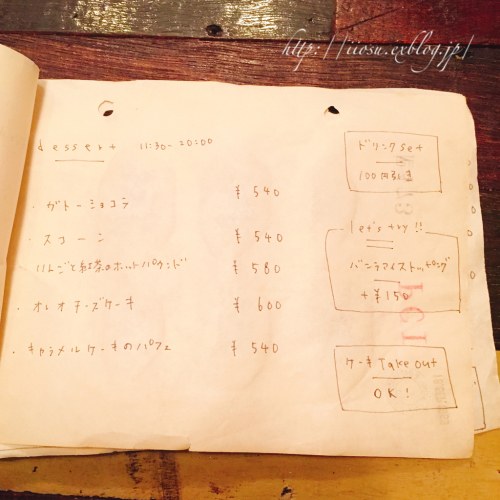 http://iiosu.exblog.jp/
dessert 11:30-20:00
・ガトーショコラ ¥540
・スコーン ¥540
・りんごと紅茶のホットパウンド ¥580
・オレオチーズケーキ ¥600
・キャラメルケーキのパフェ ¥540
ドリンクset
100円引き
let's try!!
バニラアイストッピング
+¥150
ケーキ Take out
OK!